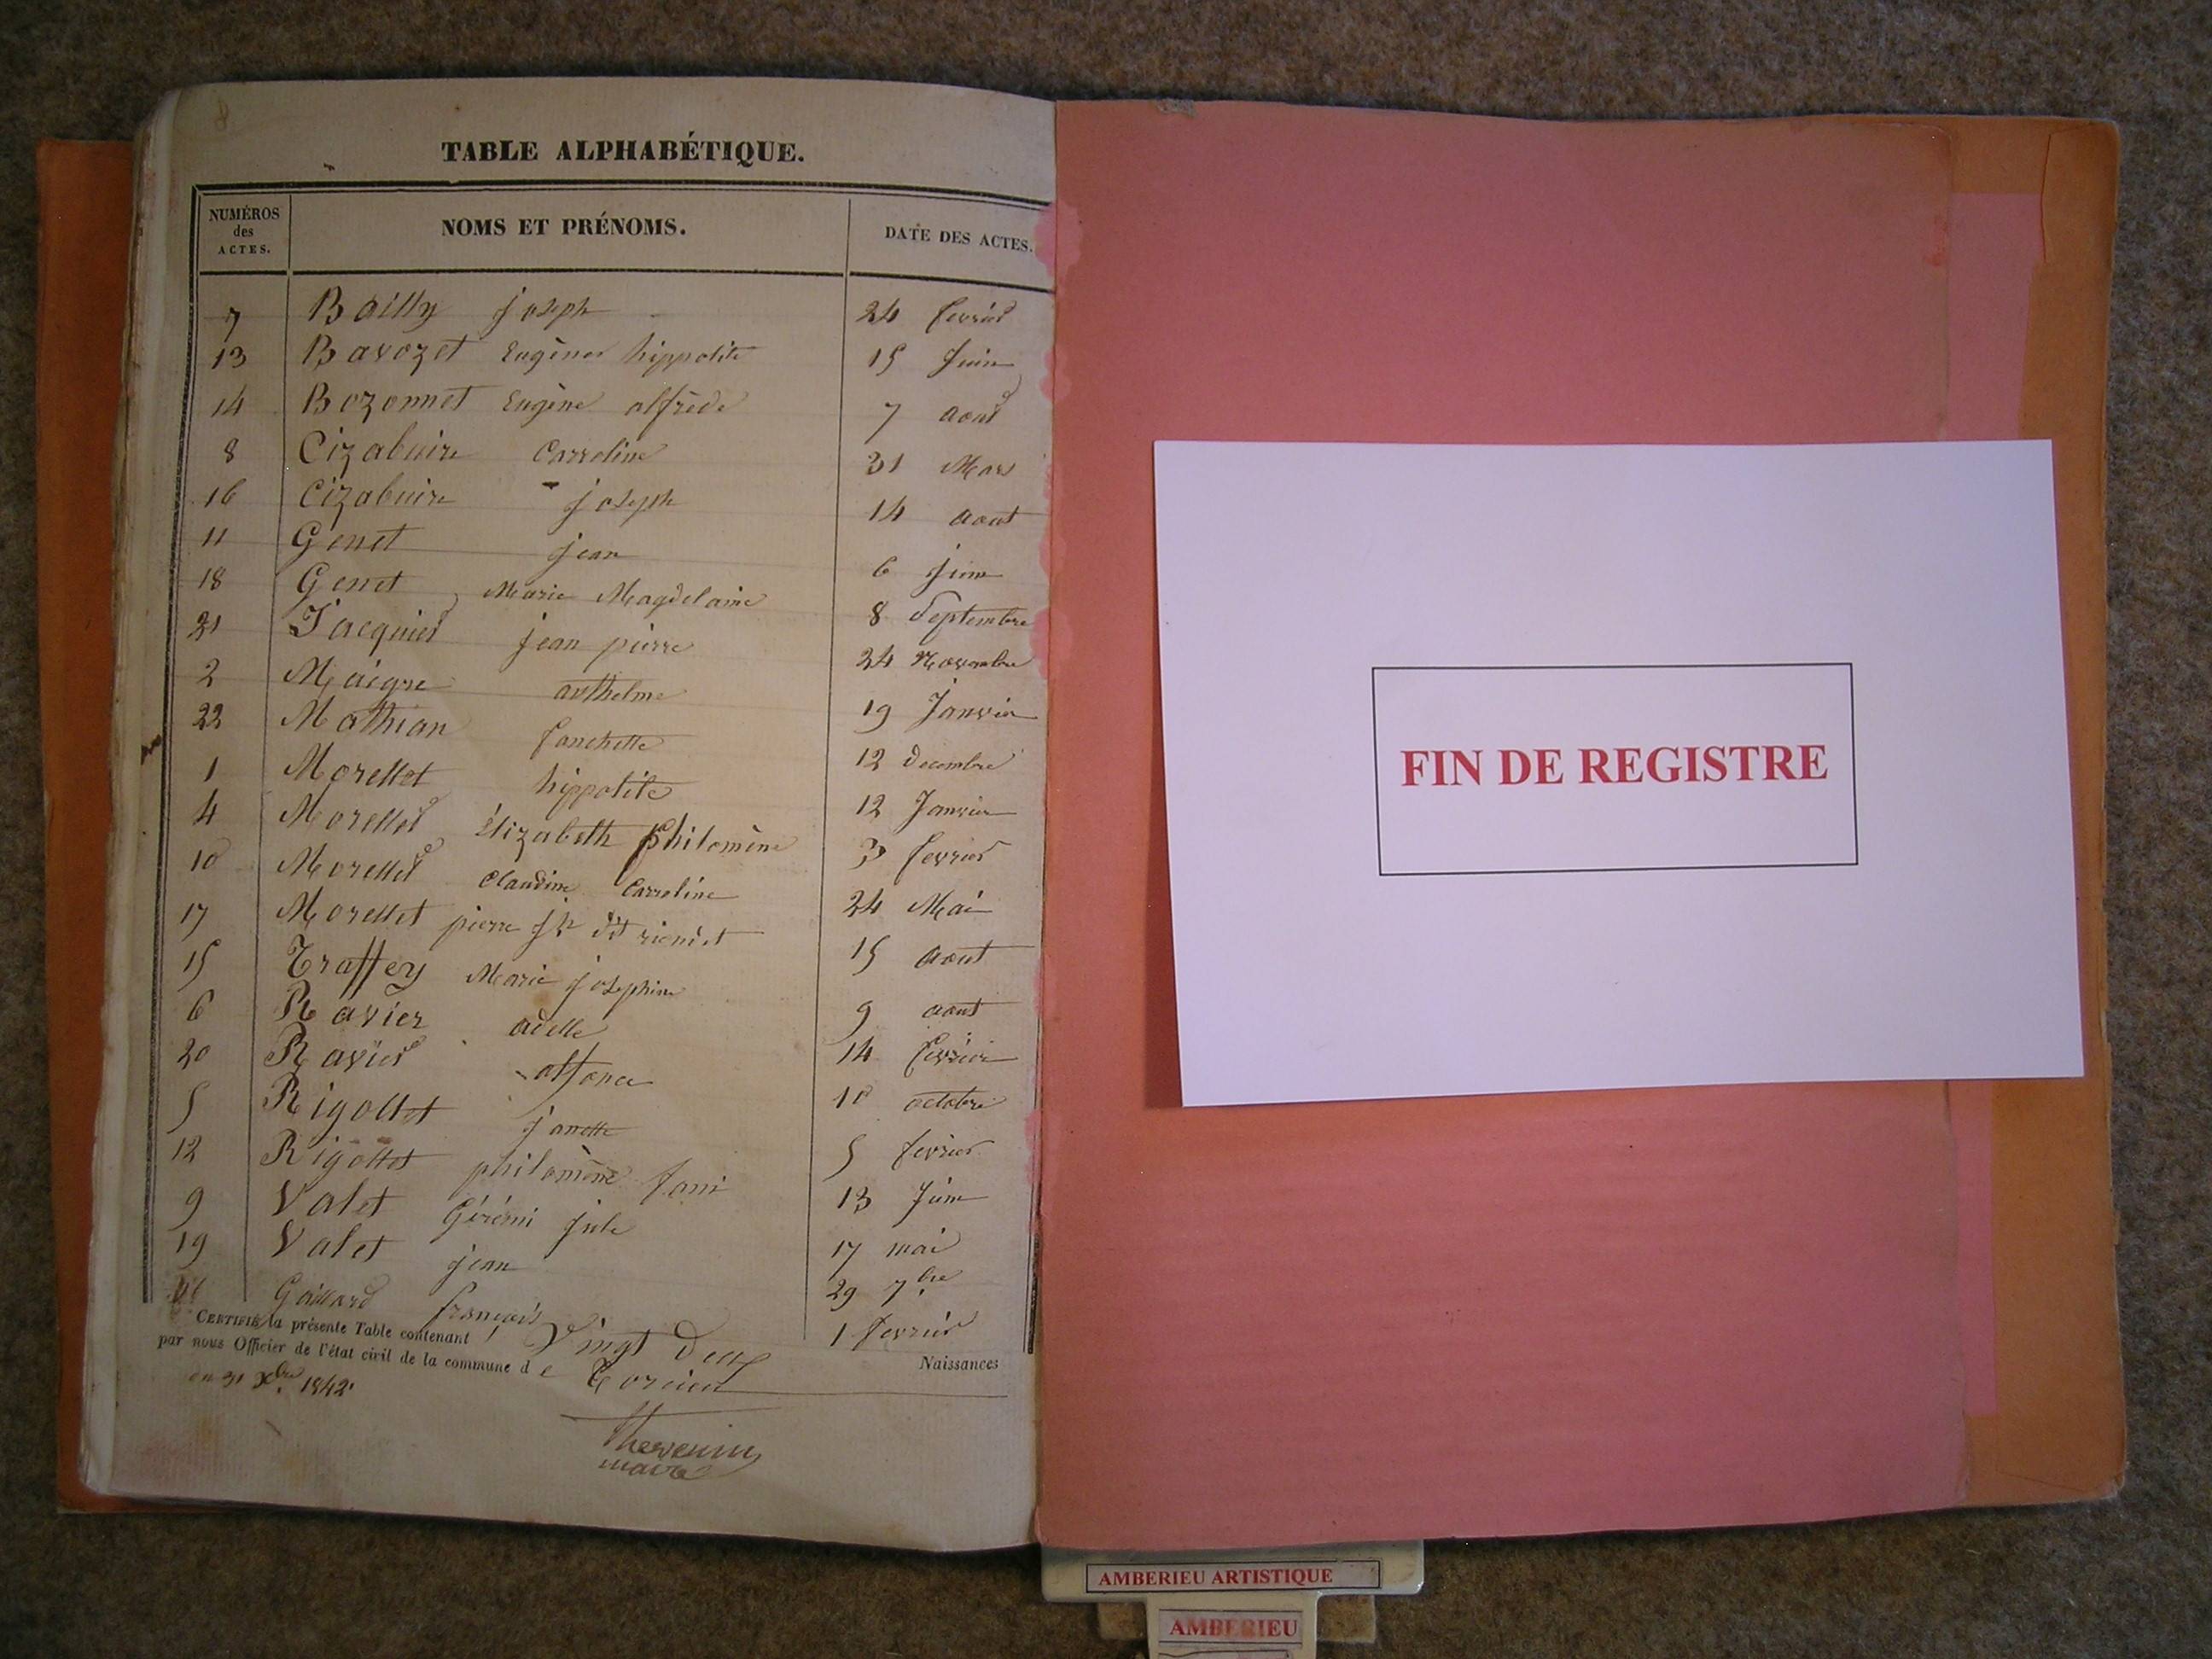 TABLE ALPHABÉTIQUE.
NUMÉROS des ACTES. NOMS ET PRÉNOMS. DATE DES ACTES.
7 Bailly joseph 24 fevrier
13 Bavozet Eugène hippolite 15 Juin
14 Bozonnet Eugène alfrède 7 aout
8 Cizabuire Carroline 31 Mars
16 Cizabuire joseph 14 aout
11 Genet jean 6 Juin
18 Genet Marie Magdelaine 8 Septembre
21 Jacquier jean pierre 24 Novembre
2 Maigre anthelme 19 Janvier
22 Mathian fanchette 12 decembre
1 Morellet hippolite 12 Janvier
4 Morellet Élizabeth philomène 3 fevrier
10 Morellet Claudine Carroline 24 Mai
17 Morellet pierre dit 15 aout
15 Traffey Marie josephine 9 aout
6 Ravier adelle 14 fevrier
20 Ravier alfonce 10 octobre
5 Rigollet janette 5 fevrier
12 Rigollet philomène fani 13 Juin
9 Valet Gérémi jule 17 mai
19 Valet jean 29 7.bre
Gaillard françois 1 fevrier
CERTIFIÉ la présente Table contenant Vingt deux Naissances
par nous Officier de l'état civil de la commune de Torcieu
31 Xbre 1842.
Thevenin
maire
FIN DE REGISTRE
AMBERIEU ARTISTIQUE
AMBERIEU